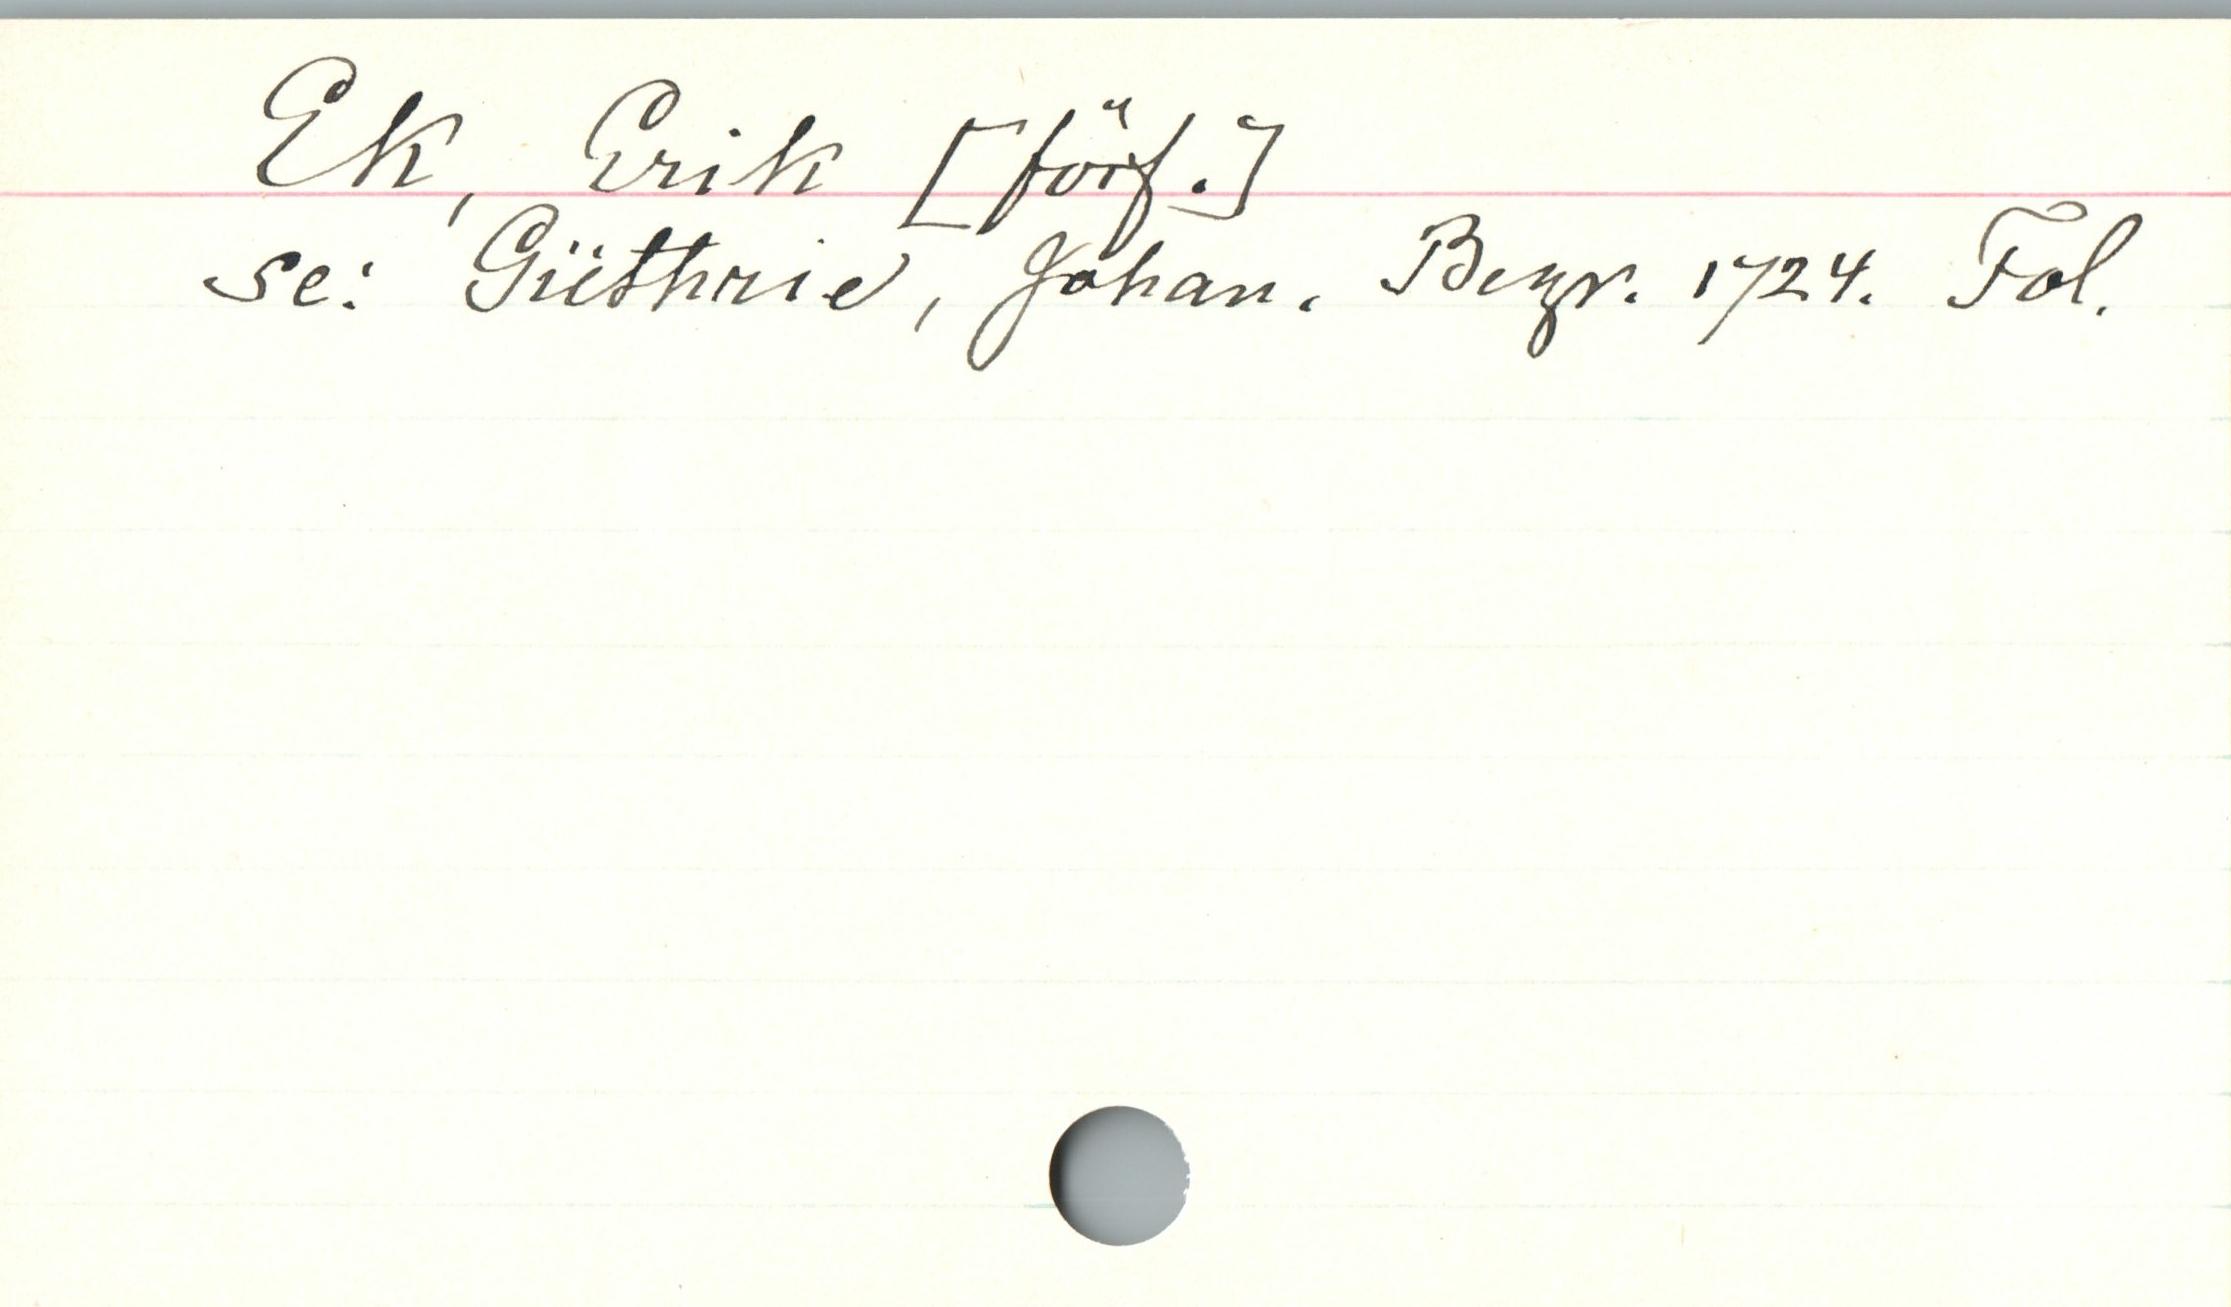 Ek, Erik [förf.]
se: Güthrie, Johan. Begr. 1724. Fol.